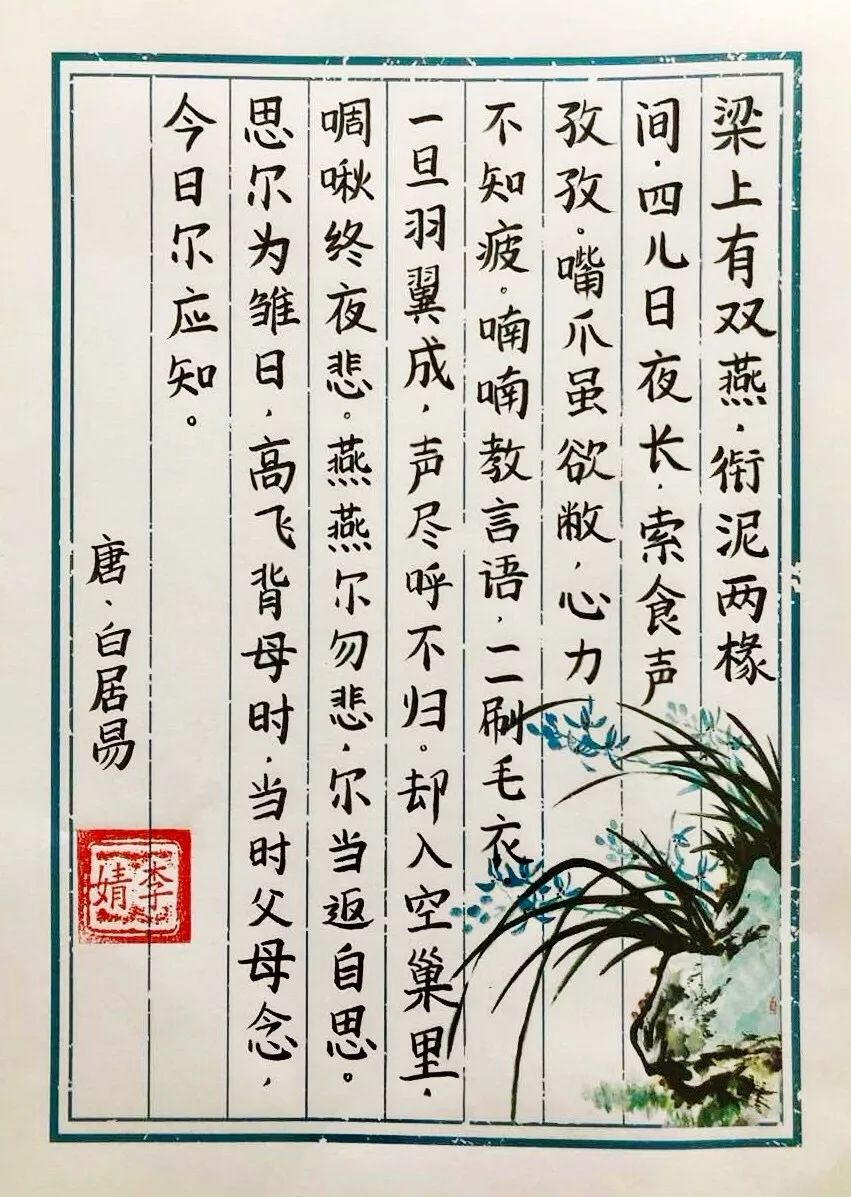 梁上有双燕，衔泥两椽
间，四儿日夜长，索食声
孜孜。嘴爪虽欲敝，心力
不知疲。喃喃教言语，二刷毛衣
一旦羽翼成，声尽呼不归。却入空巢里，
啁啾终夜悲。燕燕尔勿悲，尔当返自思。
思尔为雏日，高飞背母时，当时父母念，
今日尔应知。
唐、白居易
李婧